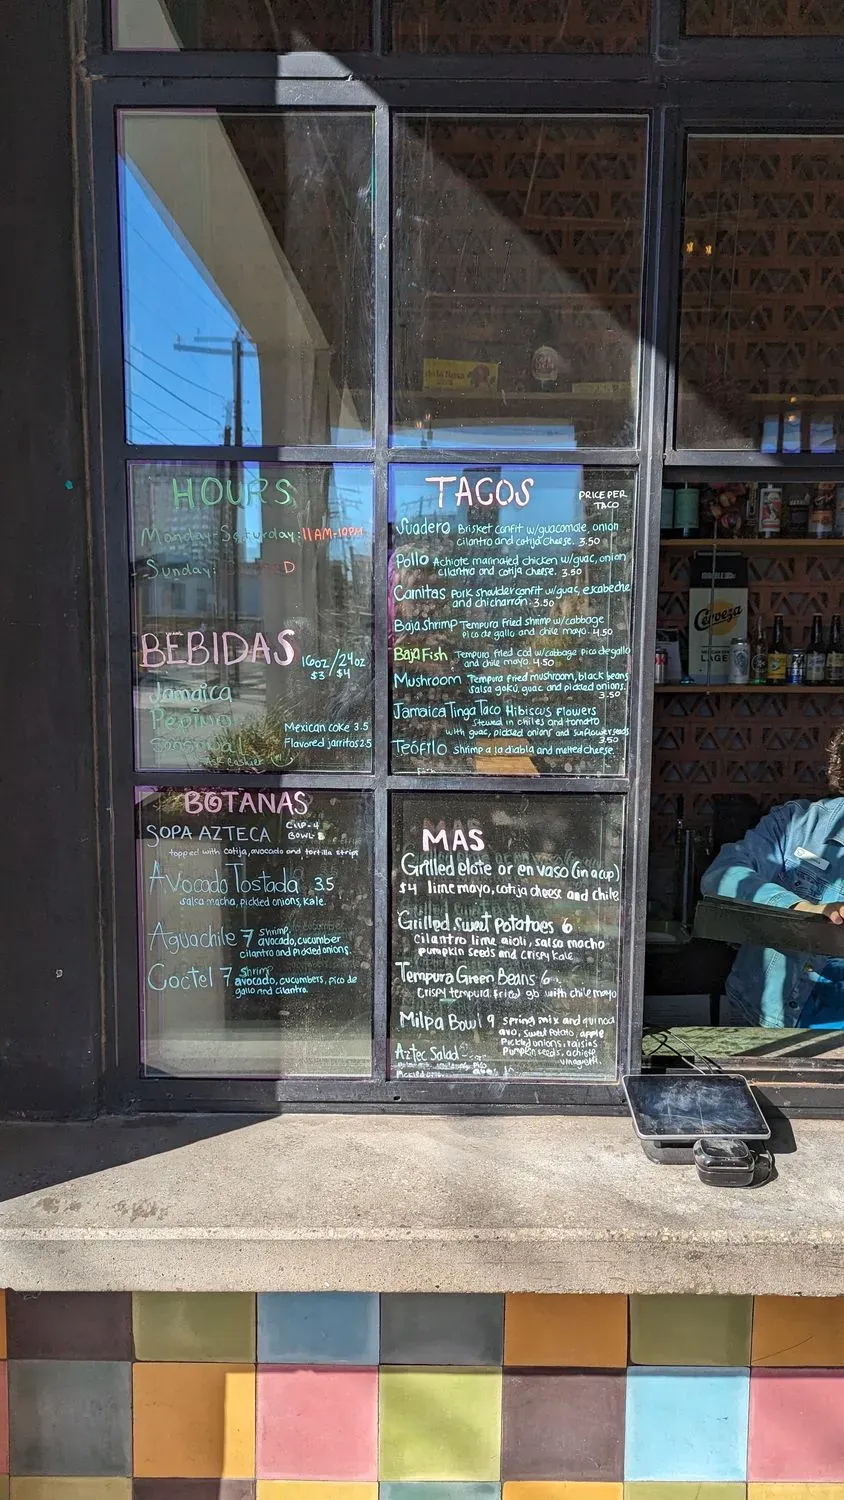 HOURS
Monday-Saturday: 11AM-10PM
Sunday: D
BEBIDAS
16oz/24oz
$3 $4
Jamaica
Pepino
Mexican coke 3.5
Flavored jarritos 2.5
TACOS
PRICE PER
TACO
Suadero Brisket confit w/guacomole, onion
cilantro and cotija cheese. 3.50
Pollo Achiote marinated chicken w/guac, onion
cilantro and cotija cheese. 3.50
Carnitas Pork shoulder confit w/guac, escabeche
and chicharrón. 3.50
Baja Shrimp Tempura Fried shrimp w/cabbage
pico de gallo and chile mayo. 4.50
Baja Fish Tempura fried cod w/cabbage pico de gallo
and chile mayo. 4.50
Mushroom Tempura fried mushroom, black beans
salsa guac and pickled onions.
3.50
Jamaica Tinga Taco Hibiscus Flowers
stewed in chiles and tomato
with guac, pickled onion and sunflower seeds
3.50
Teófilo shrimp a la diabla and melted cheese.
BOTANAS
SOPA AZTECA CUP-4
BOWL-8
topped with cotija, avocado and tortilla strips
Avocado Tostada 3.5
salsa macha, pickled onions, kale.
Aguachile 7 shrimp,
avocado, cucumber
cilantro and pickled onions.
Coctel 7 shrimp
avocado, cucumbers, pico de
gallo and cilantro.
MAS
Grilled elote or en vaso (in a cup)
$4 lime mayo, cotija cheese and chile
Grilled Sweet Potatoes 6
cilantro lime aioli, salsa macho
pumpkin seeds and crispy kale
Tempura Green Beans 6
crispy tempura fried gb with chile mayo
Milpa Bowl 9 spring mix and quinoa
avo, sweet potato, apple
pickled onions, raisins
pumpkin seeds, achiote
vinagrette.
Aztec Salad
Cerveza
LAGER